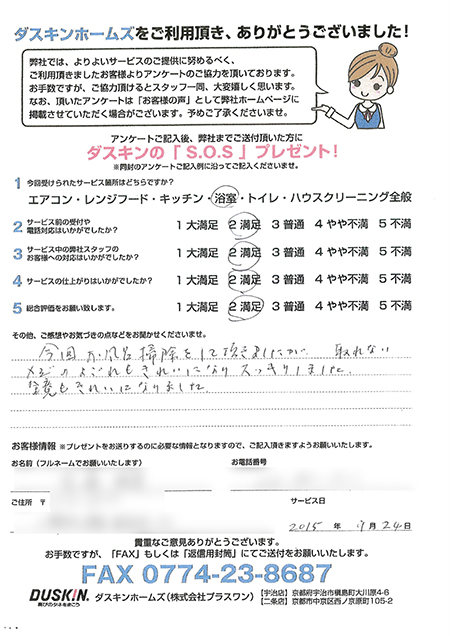 ダスキンホームズをご利用頂き、ありがとうございました!
弊社では、よりよいサービスのご提供に努めるべく、
ご利用頂きましたお客様よりアンケートのご協力を頂いております。
お手数ですが、ご協力頂けるとスタッフ一同、大変嬉しく思います。
なお、頂いたアンケートは「お客様の声」として弊社ホームページに
掲載させていただく場合がございます。予めご了承くださいませ。
アンケートご記入後、弊社までご送付頂いた方に
ダスキンの「 S.O.S 」プレゼント!
※同封のアンケートご記入例に沿ってご記入くださいませ。
1 今回受けられたサービス箇所はどちらですか?
エアコン・レンジフード・キッチン・浴室・トイレ・ハウスクリーニング全般
2 サービス前の受付や
電話対応はいかがでしたか? 1 大満足 2 満足 3 普通 4 やや不満 5 不満
3 サービス中の弊社スタッフの
お客様への対応はいかがでしたか? 1 大満足 2 満足 3 普通 4 やや不満 5 不満
4 サービスの仕上がりはいかがでしたか? 1 大満足 2 満足 3 普通 4 やや不満 5 不満
5 総合評価をお願い致します。 1 大満足 2 満足 3 普通 4 やや不満 5 不満
その他、ご感想やお気づきの点などをお聞かせくださいませ。
今回お風呂掃除をして頂きましたが 取れない
のよごれもきれいになりスッキリしました。
鏡もきれいになりました。
お客様情報 ※プレゼントをお送りするのに必要な情報となりますので、ご記入頂きますようお願いいたします。
お名前(フルネームでお願いいたします) お電話番号
ご住所 〒 サービス日
2015 年 月 24日
貴重なご意見ありがとうございます。
お手数ですが、「FAX」もしくは「返信用封筒」にてご送付をお願いいたします。
FAX 0774-23-8687
DUSKIN 喜びのタネをまこう ダスキンホームズ(株式会社プラスワン) 【宇治店】京都府宇治市槇島町大川原4-6
【二条店】京都市中京区西ノ京原町105-2